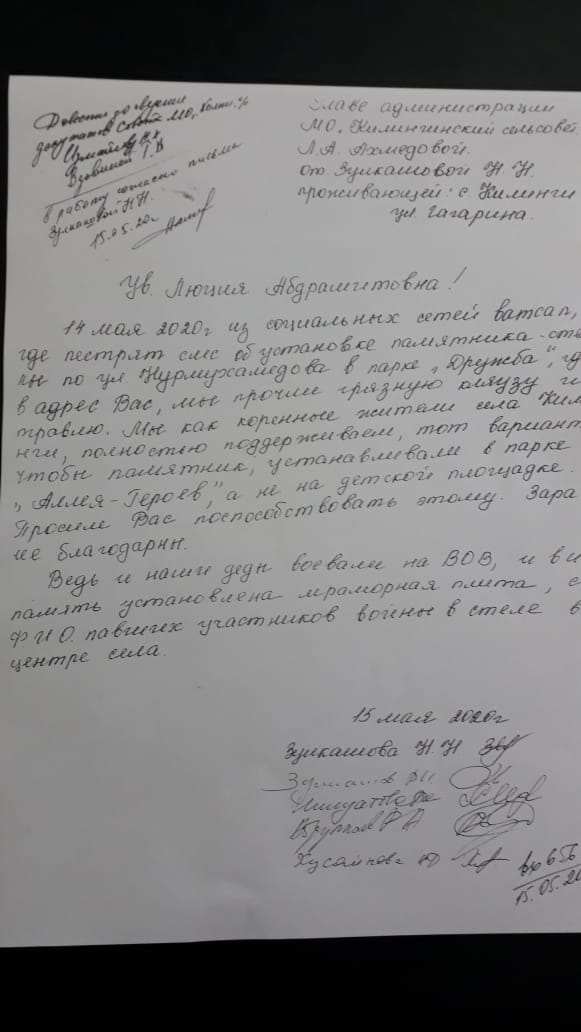 Довести до сведения
депутатов Совета МО, Килин. с/с
В работу согласно письма
Зулкашовой Н.Н.
15.05.20г
Главе администрации
МО „Килинчинский сельсовет
Л.А. Ахмедовой.
от Зулкашовой Н. Н.
проживающей: с. Килинчи
ул. Гагарина.
Ув. Люция Абдрашитовна!
14 мая 2020г из социальных сетей ватсап,
где пестрят смс об установке памятника-сте
лы по ул. Нурмухамедова в парке „Дружба", гд
в адрес Вас, мы прочли грязную кляузу и
травлю. Мы как коренные жители села Кил
нчи, полностью поддерживаем, тот вариант
чтобы памятник, устанавливали в парке
„Аллея-Героев", а не на детской площадке.
Просиле Вас поспособствовать этому. Зара
нее благодарны.
Ведь и наши деды воевали на ВОВ, и в и
память установлена мраморная плита, с
ФИО. павших участников войны в стеле в
центре села.
15 мая 2020г
Зулкашова Н. Н
Хусаинова
вх 656
15.05.20